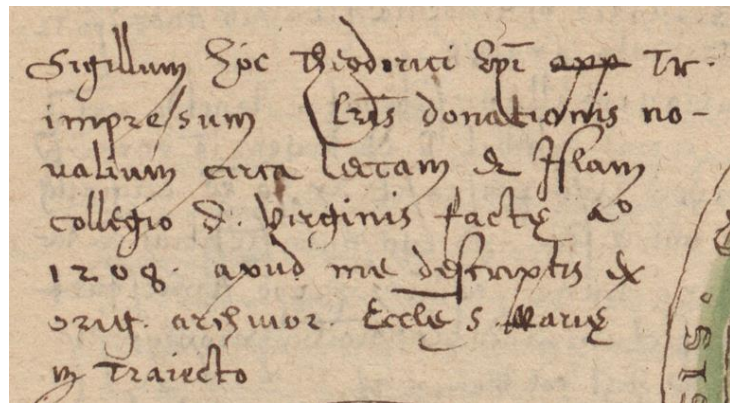 Sigillum hoc Theodorici Epi app Tr.
impressum Lris donationis no-
valium circa Leccam & Islam
collegio D. Virginis factę Aº
1208. apud me descriptis ex
orig. archivor. Eccle S. Marię
in Traiecto
SIS.